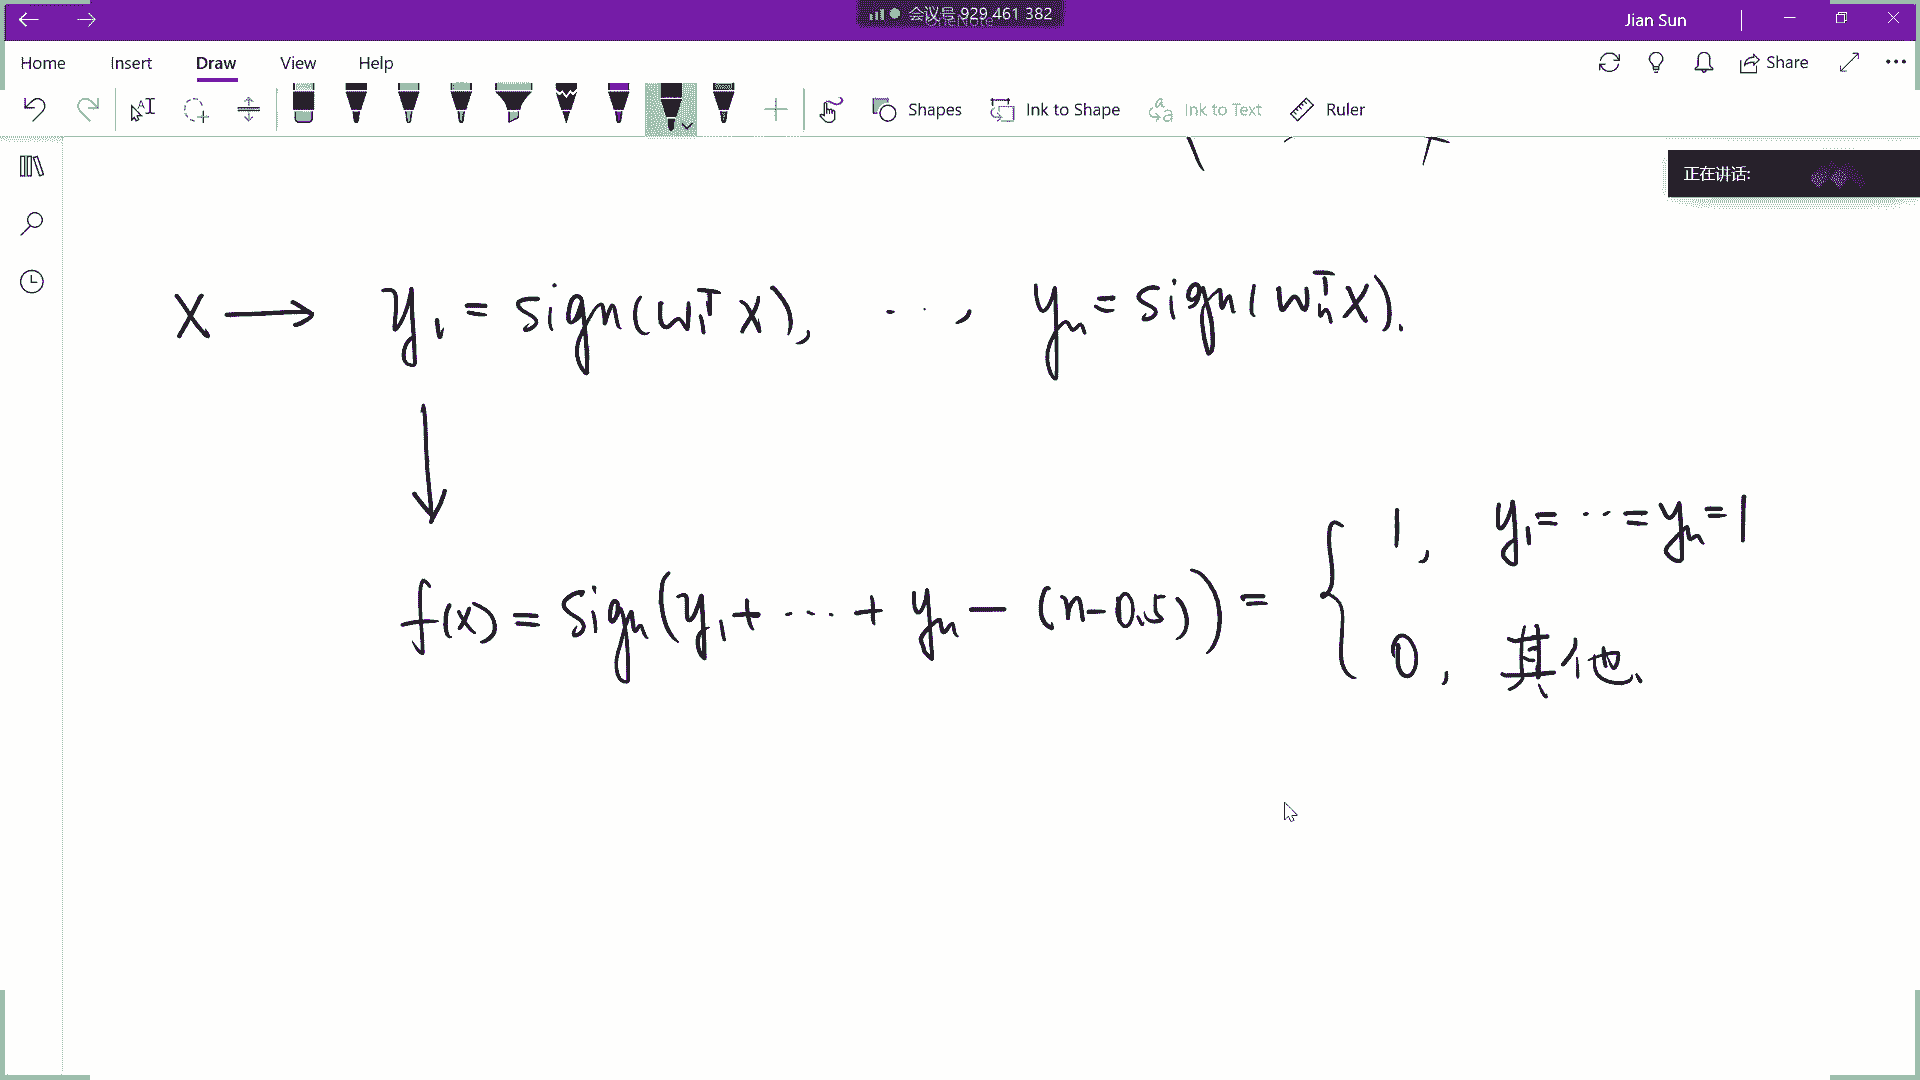 会议号 929 461 382
Jian Sun
Home Insert Draw View Help
Share
Shapes Ink to Shape Ink to Text Ruler
正在讲话:
X ⟶ y₁ = sign(w₁ᵀ X), ⋯, yₙ = sign(wₙᵀ X).
↓
f(x) = sign(y₁ + ⋯ + yₙ − (n−0.5)) = { 1, y₁ = ⋯ = yₙ = 1
0, 其他.